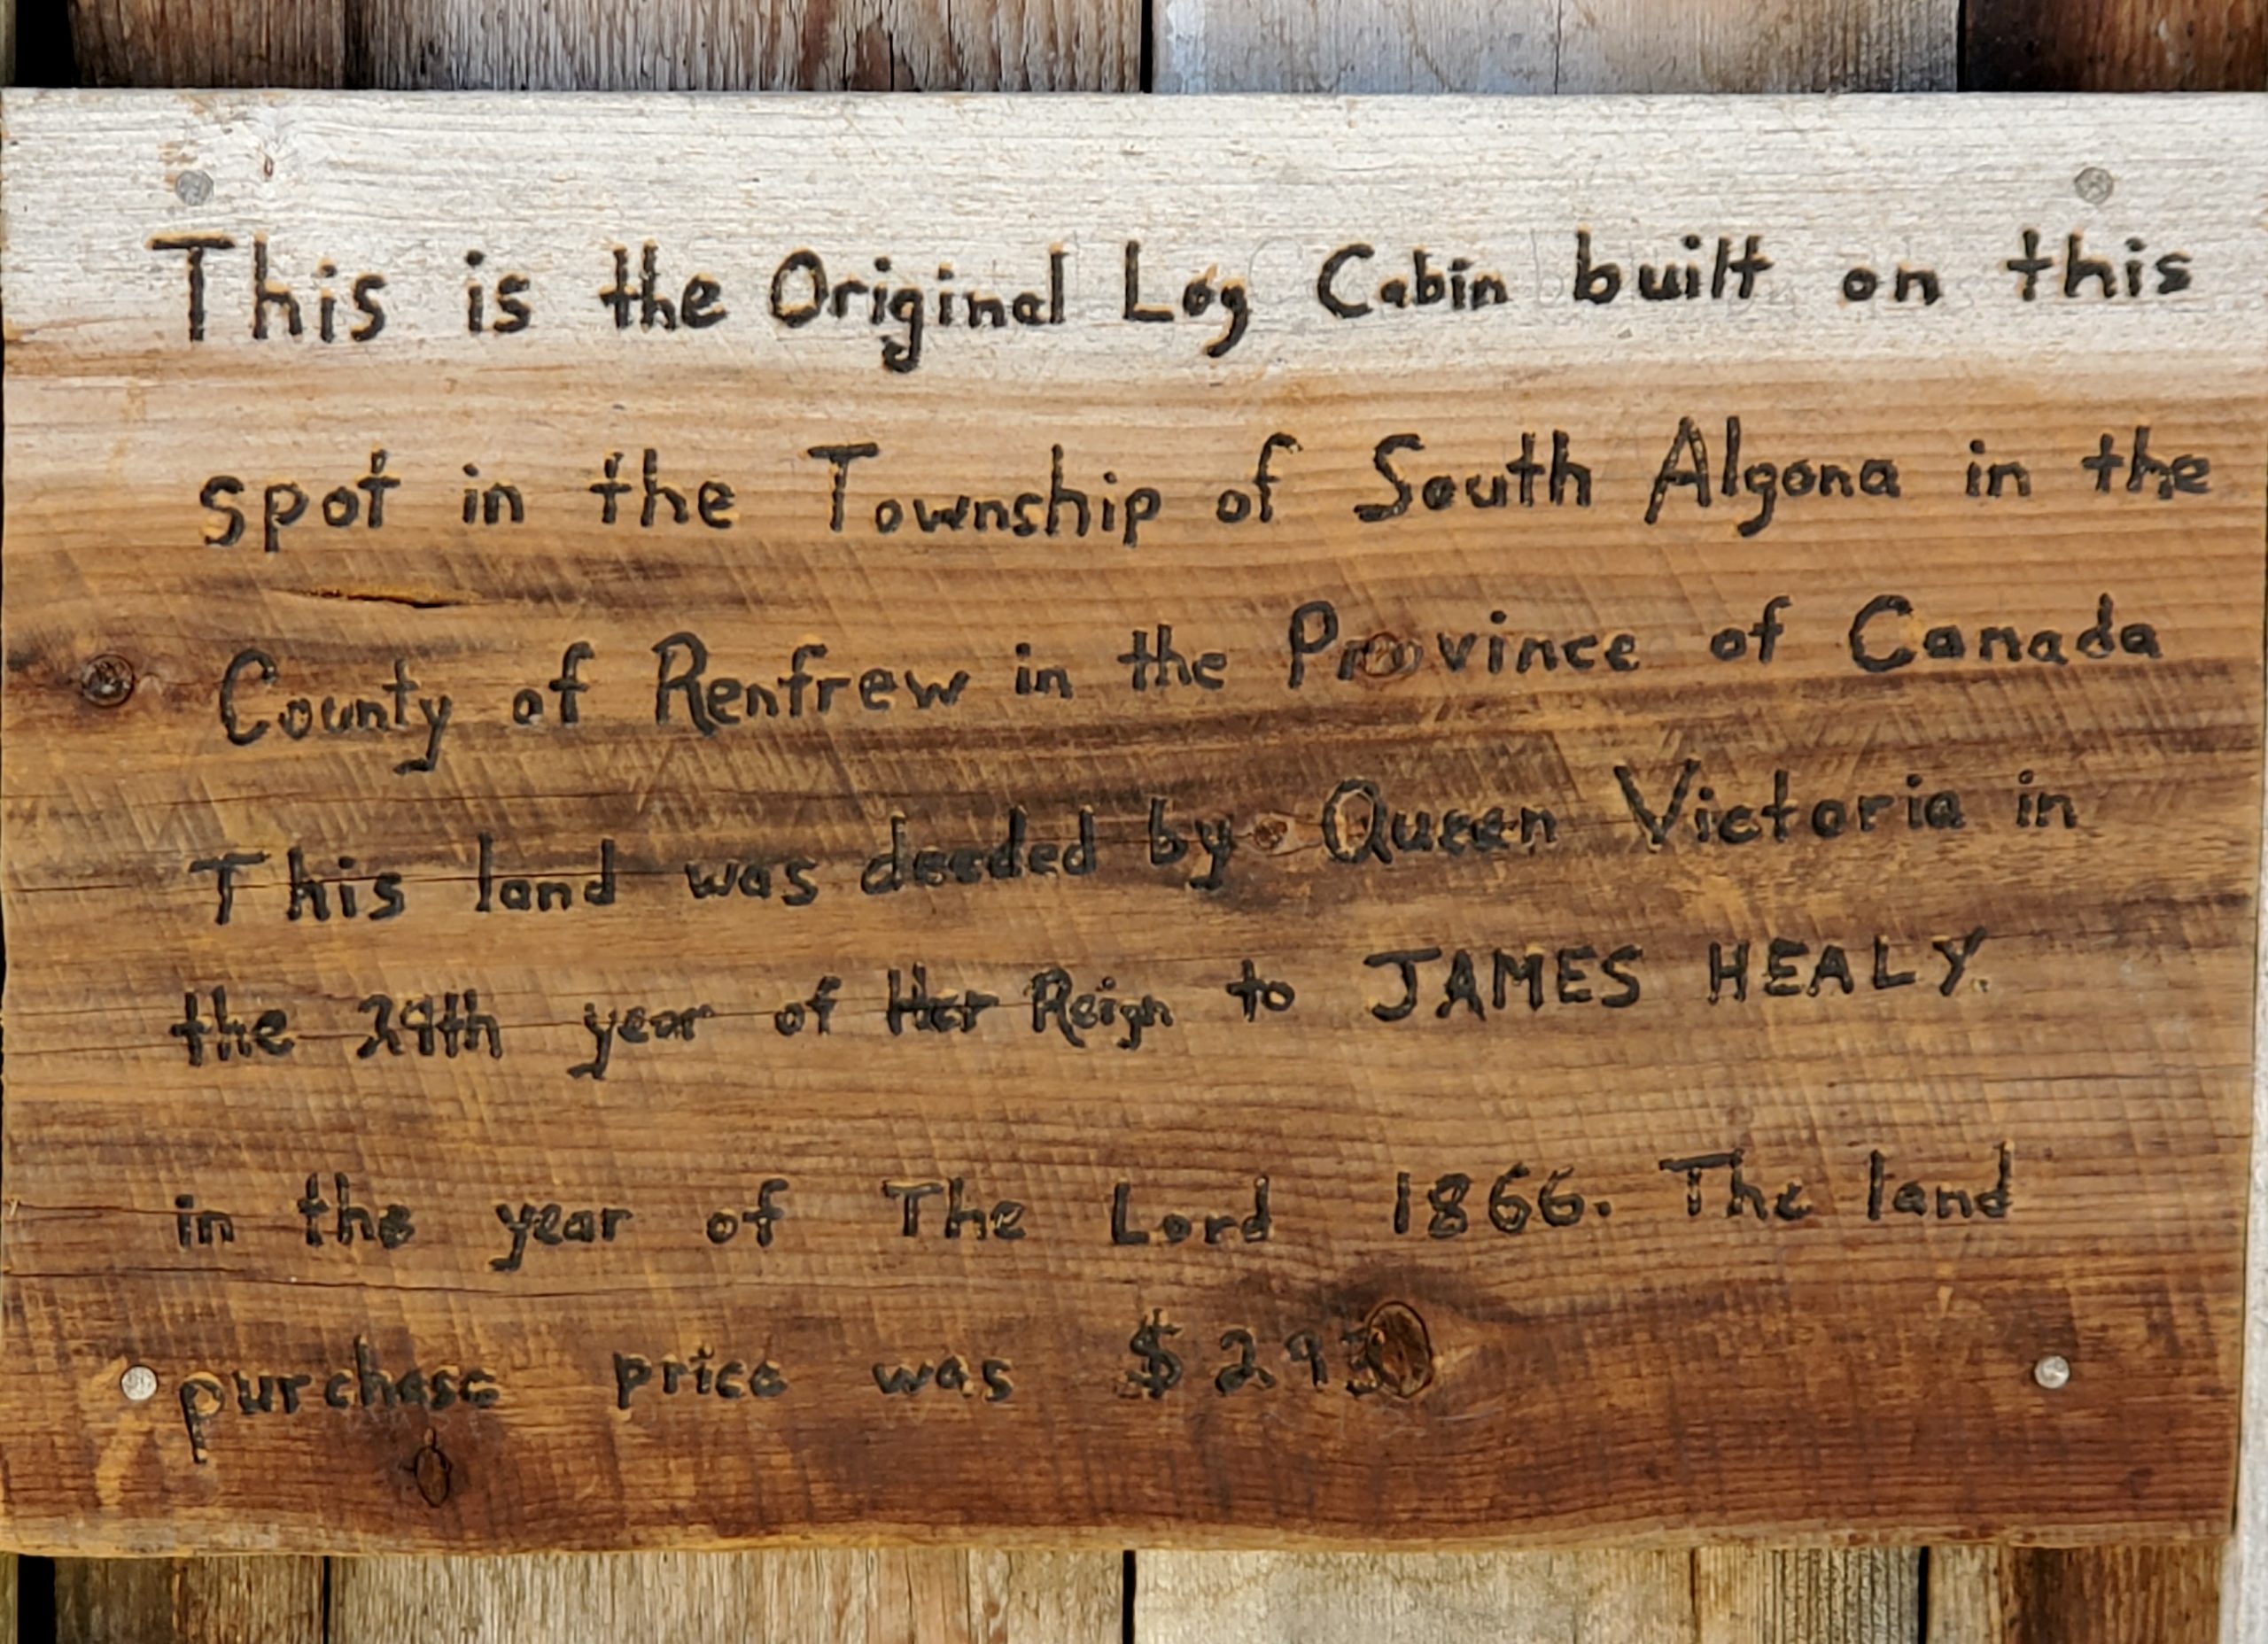 This is the Original Log Cabin built on this
spot in the Township of South Algona in the
County of Renfrew in the Province of Canada
This land was deeded by Queen Victoria in
the 29th year of Her Reign to JAMES HEALY.
in the year of The Lord 1866. The land
purchase price was $293